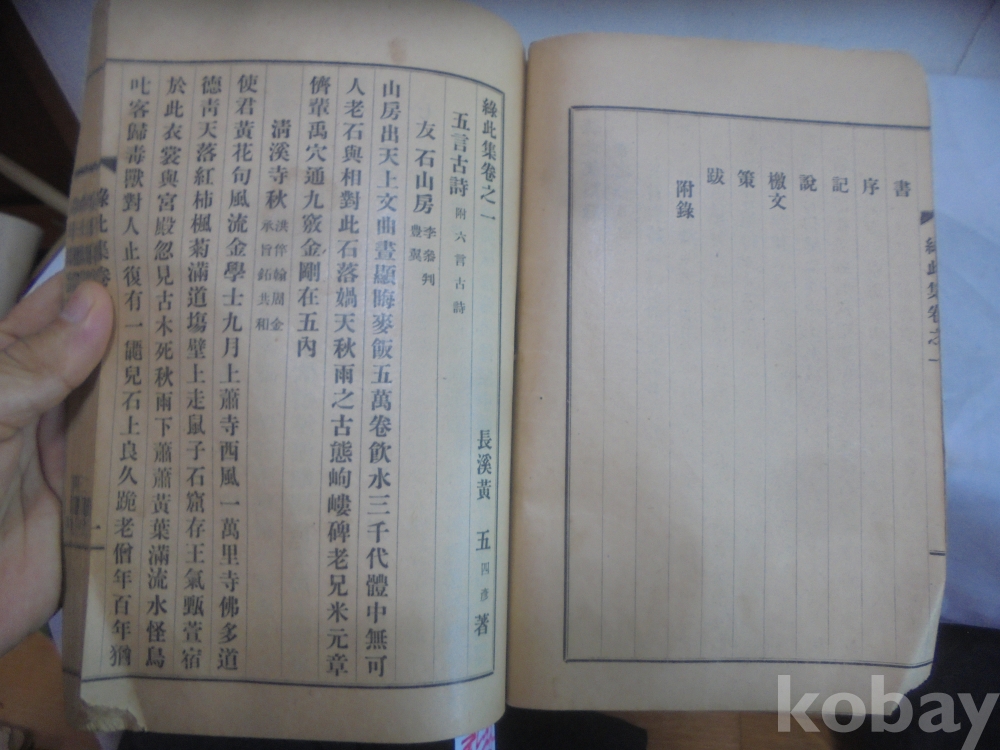 書
序
記
說
檄文
策
跋
附錄
綠此集卷之一
綠此集卷之一
長溪黃 五 四彦 著
五言古詩 附六言古詩
友石山房 李叅判 豊翼
山房出天上文曲晝顯晦麥飯五萬卷飮水三千代體中無可
人老石與相對此石落媧天秋雨之古態岣嶁碑老兄米元章
儕輩禹穴通九竅金剛在五內
清溪寺秋 洪侍翰周金 承旨鉐共和
使君黃花句風流金學士九月上蕭寺西風一萬里寺佛多道
德靑天落紅柿楓菊滿道塲壁上走鼠子石窟存王氣甄萱宿
於此衣裳與宮殿忽見古木死秋雨下蕭蕭黃葉滿流水怪鳥
叱客歸毒獸對人止復有一鼯兒石上良久跪老僧年百年猶
綠此集卷
一
kobay